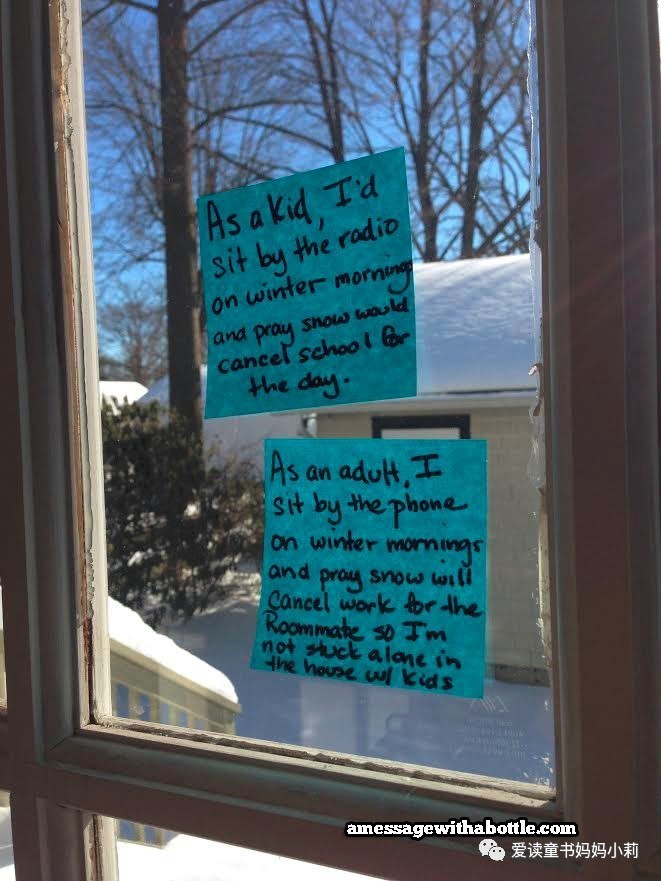 As a kid, I'd
sit by the radio
on winter mornings
and pray snow would
cancel school for
the day.
As an adult, I
sit by the phone
on winter mornings
and pray snow will
cancel work for the
Roommate so I'm
not stuck alone in
the house w/ kids
amessagewithabottle.com
爱读童书妈妈小莉